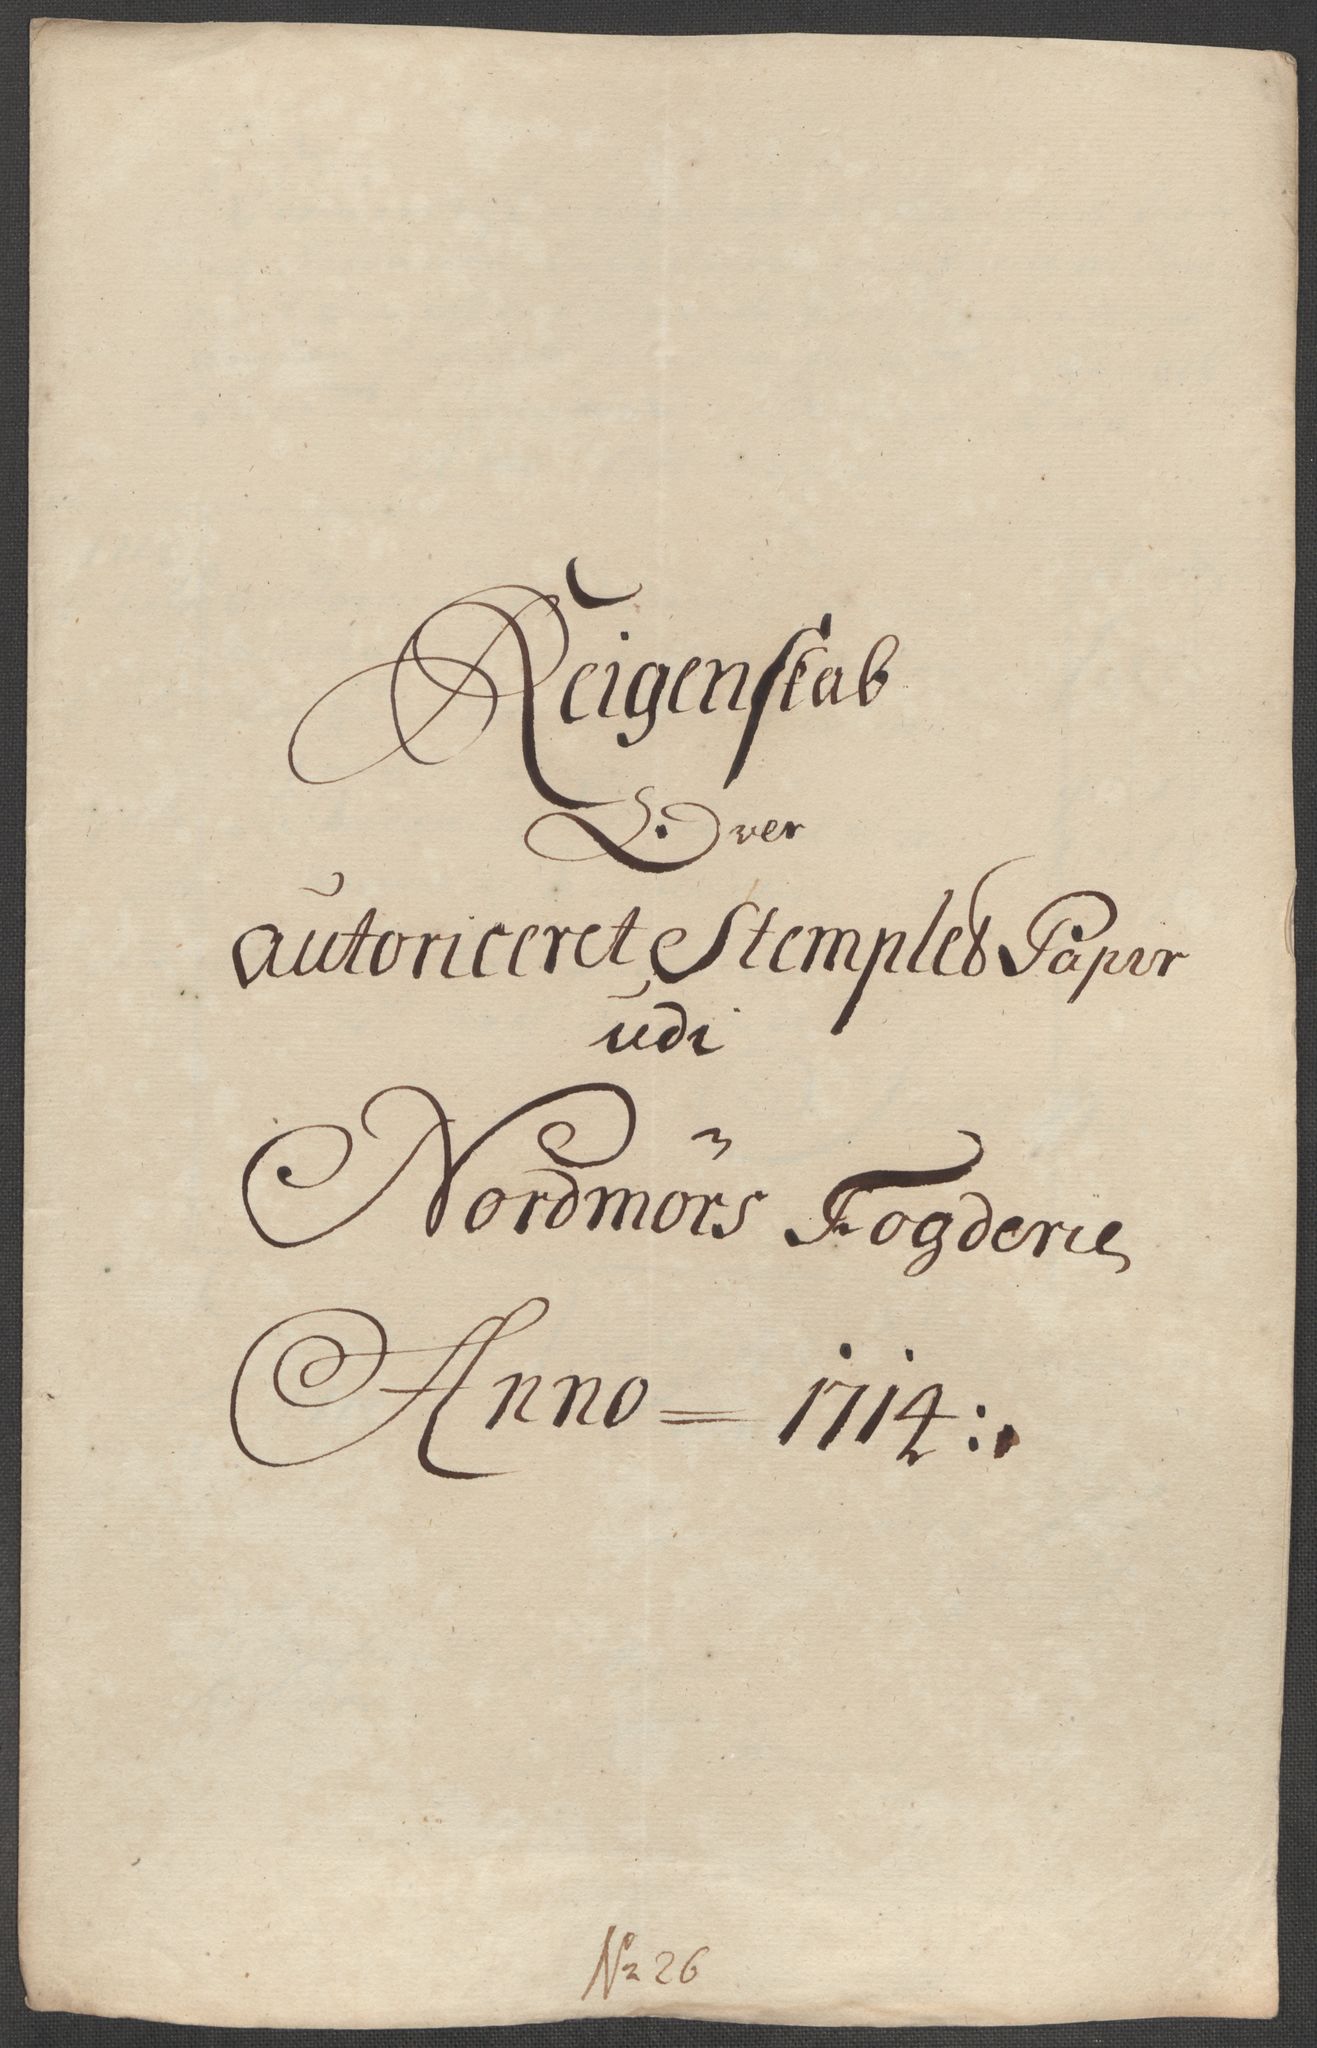 Reigenskab
Over
autoriceret Stemplet Papir
udi
Nordmörs Fogderie
Anno = 1714:.
No 26